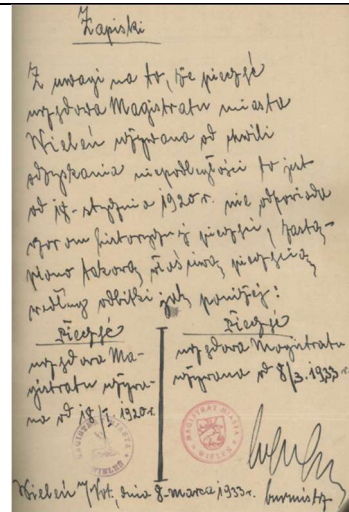 Zapiski
Z uwagi na to, że pieczęć
urzędowa Magistratu miasta
Wieleń używana od chwili
odzyskania niepodległości to jest
od 18. stycznia 1920 r. nie odpowiada
wzorom historycznej pieczęci, zastą-
piono takową właściwą pieczęcią
według odbitki jak poniżej:
Pieczęć
urzędowa Ma-
gistratu używa-
na od 18/I. 1920 r.
MAGISTRAT MIASTA
WIELEŃ
Pieczęć
urzędowa Magistratu
używana od 8/3. 1933
MAGISTRAT MIASTA
WIELEŃ
Wieleń n/Not, dnia 8. marca 1933 r.
burmistrz